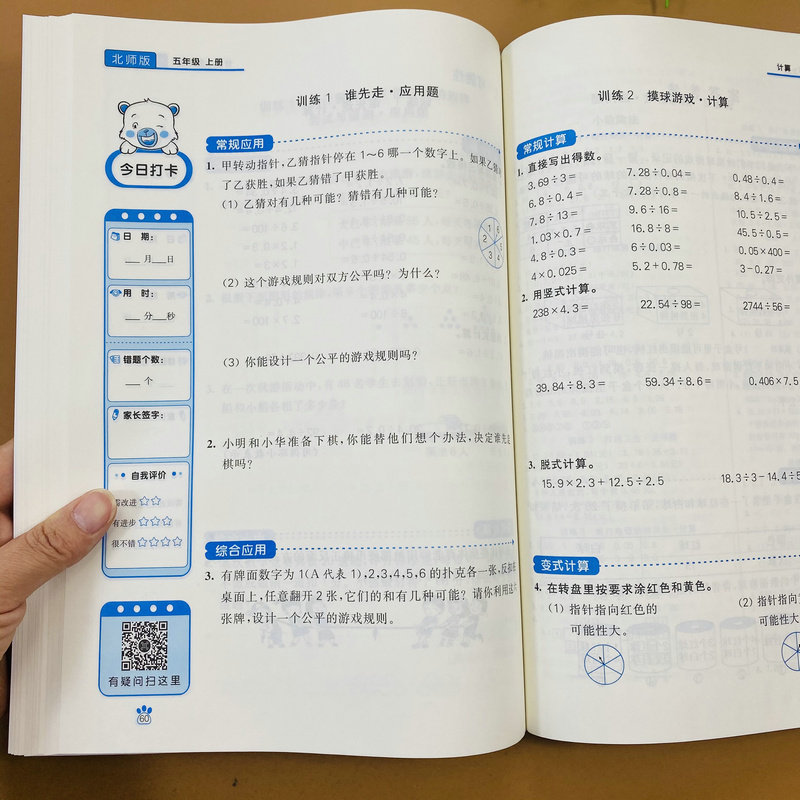 北师版 五年级 上册
今日打卡
日 期：
月 日
用 时：
分 秒
错题个数：
个
家长签字：
自我评价
需改进☆☆
有进步☆☆☆
很不错☆☆☆☆
有疑问扫这里
60
训练1 谁先走·应用题
常规应用
1. 甲转动指针,乙猜指针停在1~6哪一个数字上。如果乙猜
了乙获胜,如果乙猜错了甲获胜。
(1) 乙猜对有几种可能？猜错有几种可能？
1
6
2
5
3
4
(2) 这个游戏规则对双方公平吗？为什么？
(3) 你能设计一个公平的游戏规则吗？
2. 小明和小华准备下棋,你能替他们想个办法,决定谁先走
棋吗？
综合应用
3. 有牌面数字为1(A代表1),2,3,4,5,6的扑克各一张,反扣在
桌面上,任意翻开2张,它们的和有几种可能？请你利用这
张牌,设计一个公平的游戏规则。
计算
训练2 摸球游戏·计算
常规计算
1. 直接写出得数。
3.69÷3= 7.28÷0.04= 0.48÷0.4=
6.8÷0.4= 7.28÷0.8= 8.4÷1.6=
7.8÷13= 9.6÷16= 10.5÷2.5=
1.03×0.7= 16.8÷8= 45.5÷0.5=
4.8÷0.3= 6÷0.03= 0.05×400=
4×0.025= 5.2+0.78= 3-0.27=
2. 用竖式计算。
238×4.3= 22.54÷98= 2744÷56=
39.84÷8.3= 59.34÷8.6= 0.406×7.5
3. 脱式计算。
15.9×2.3+12.5÷2.5 18.3÷3-14.4÷
变式计算
4. 在转盘里按要求涂红色和黄色。
(1) 指针指向红色的 (2) 指针指向
可能性大。 可能性